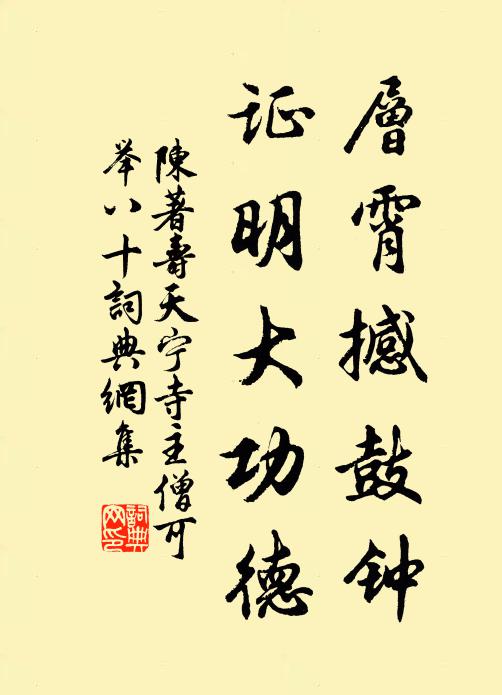 層霄撼鼓钟
证明大功德
陳著壽天宁寺主僧可
举八十詞典網集
詞典网印